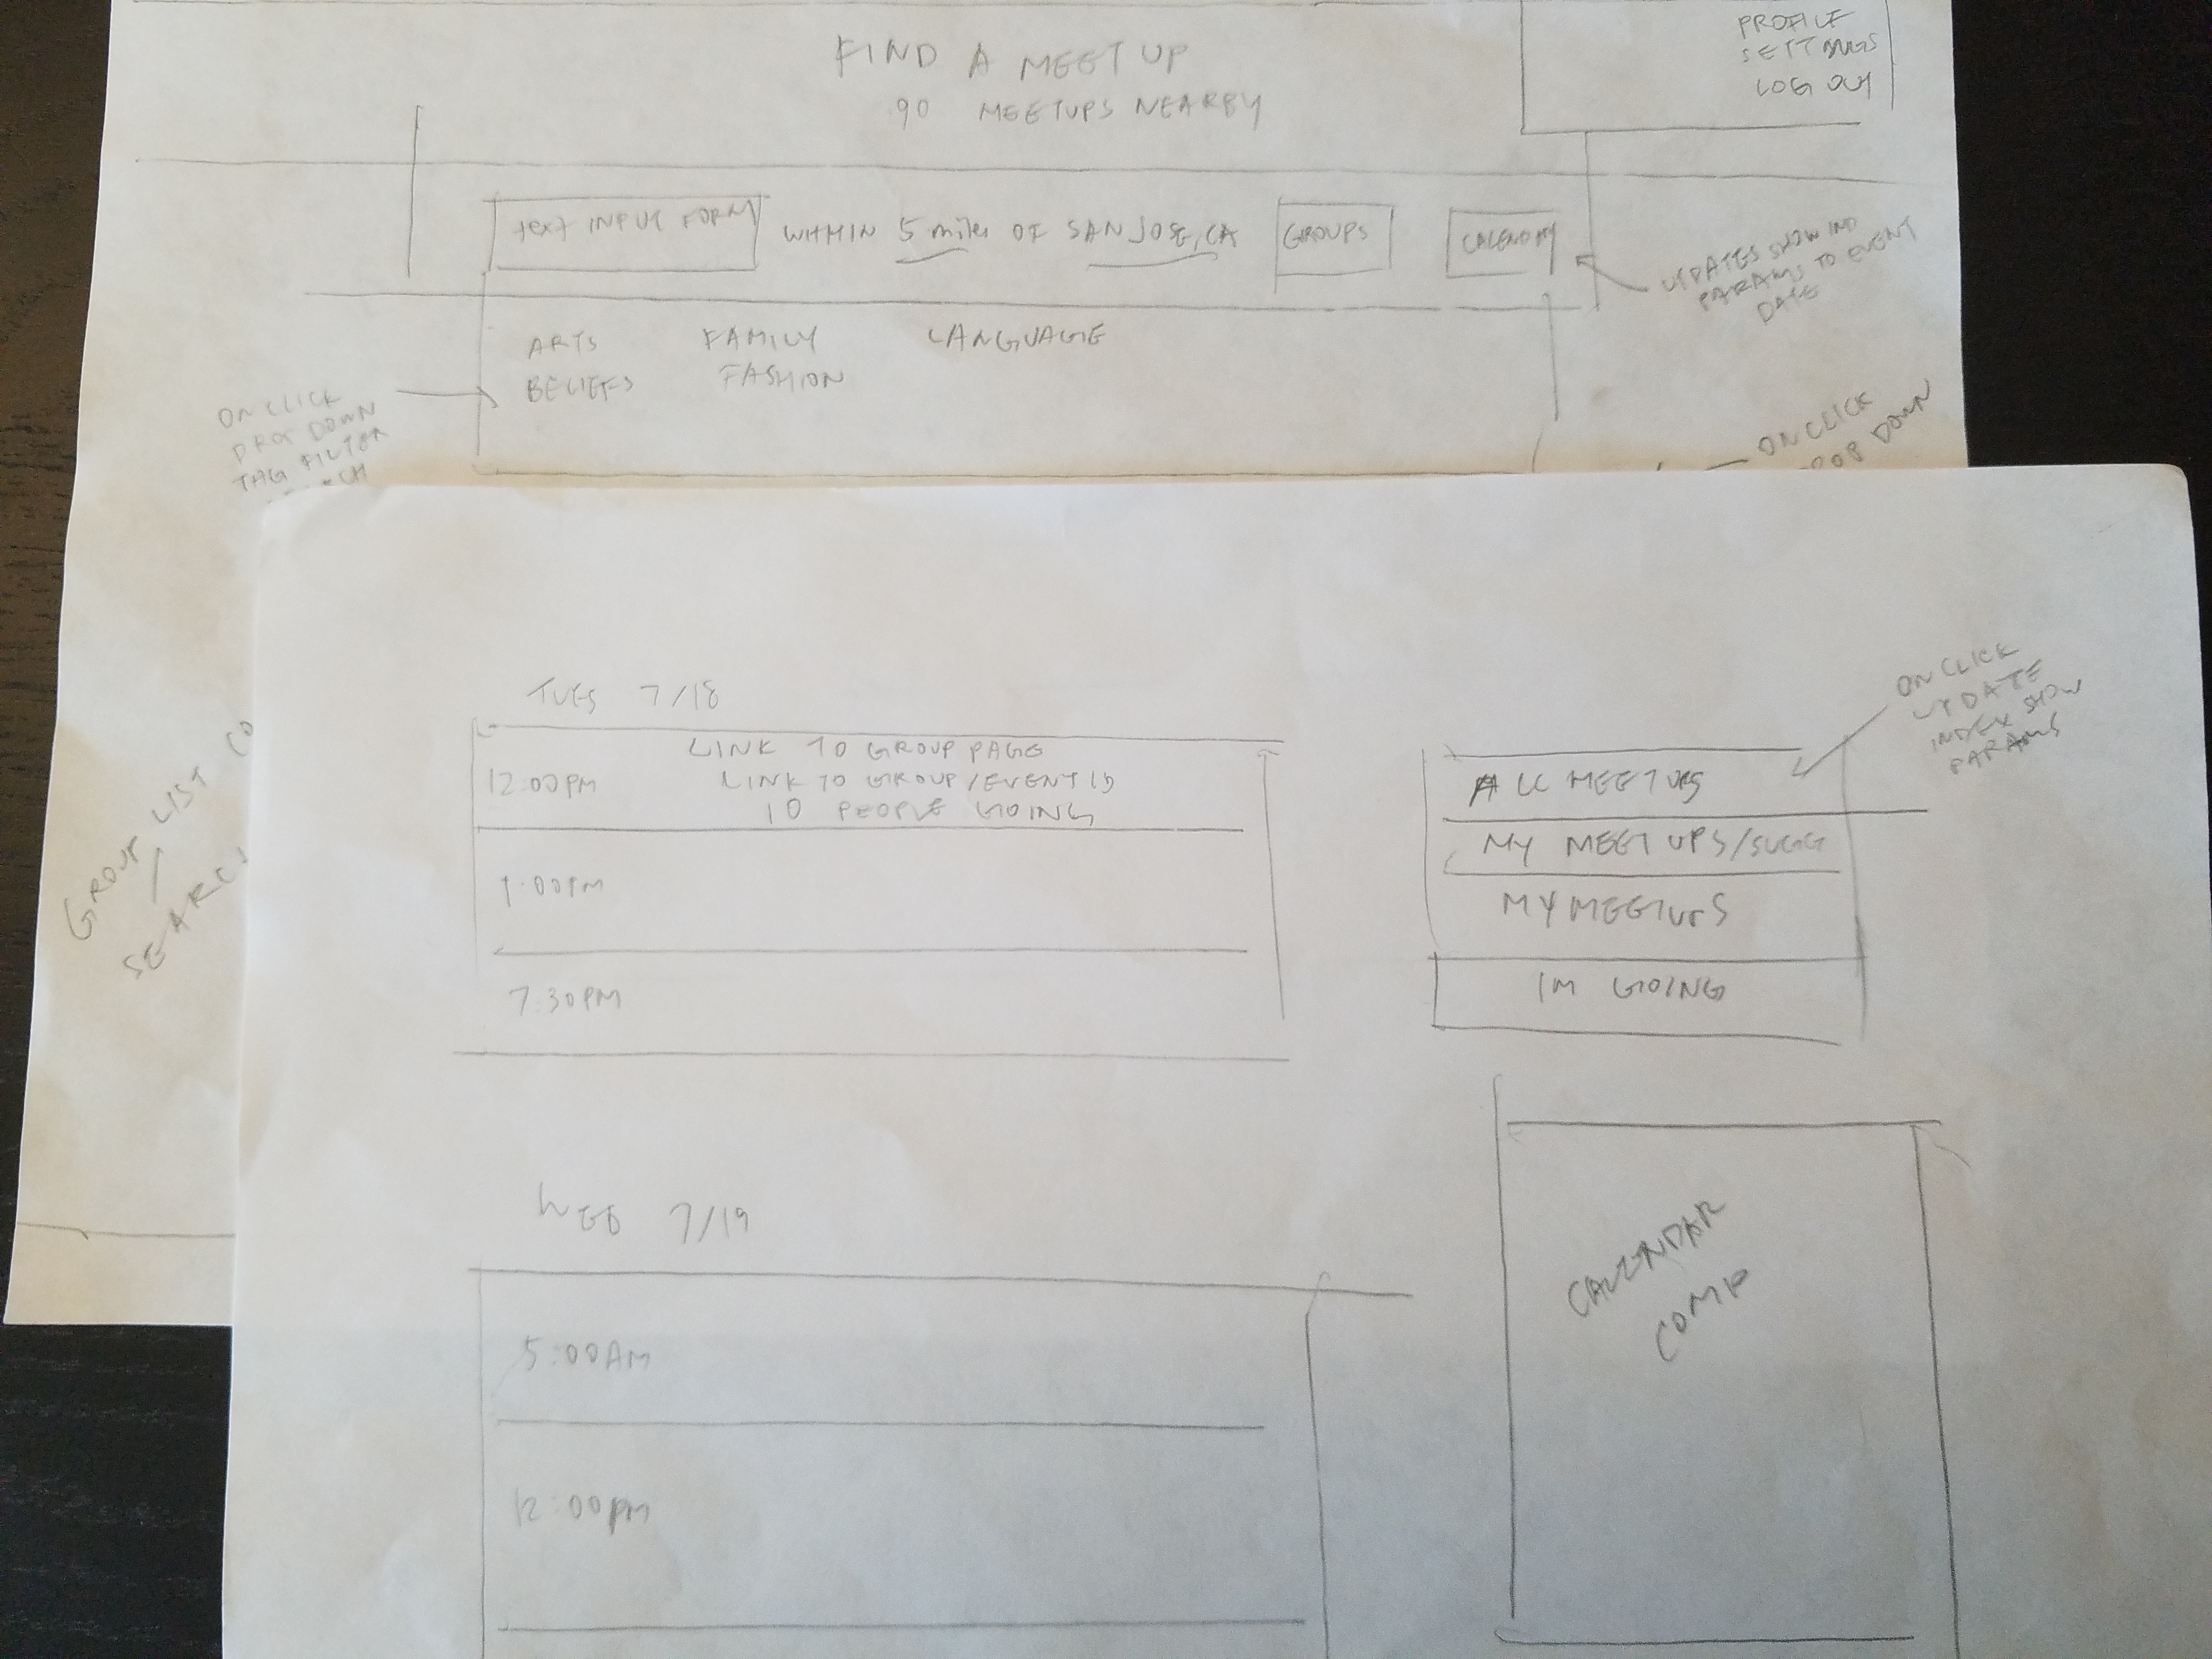 PROFILE
SETTINGS
LOG OUT
FIND A MEET UP
90 MEETUPS NEARBY
text INPUT FORM WITHIN 5 miles OF SAN JOSE, CA GROUPS CALENDAR
UPDATES SHOW IND
PARAMS TO EVENT
DATE
ARTS FAMILY LANGUAGE
BELIEFS FASHION
ON CLICK
DROP DOWN
TAG FILTER
ON CLICK
DOWN
GROUP LIST CO
SEARC
TUES 7/18
LINK TO GROUP PAGE
12:00PM LINK TO GROUP/EVENT ID
10 PEOPLE GOING
1:00PM
7:30PM
ON CLICK
UPDATE
INDEX SHOW
PARAMS
ALL MEETUPS
MY MEETUPS/SUGG
MY MEETUPS
IM GOING
WED 7/19
5:00AM
12:00PM
CALENDAR
COMP